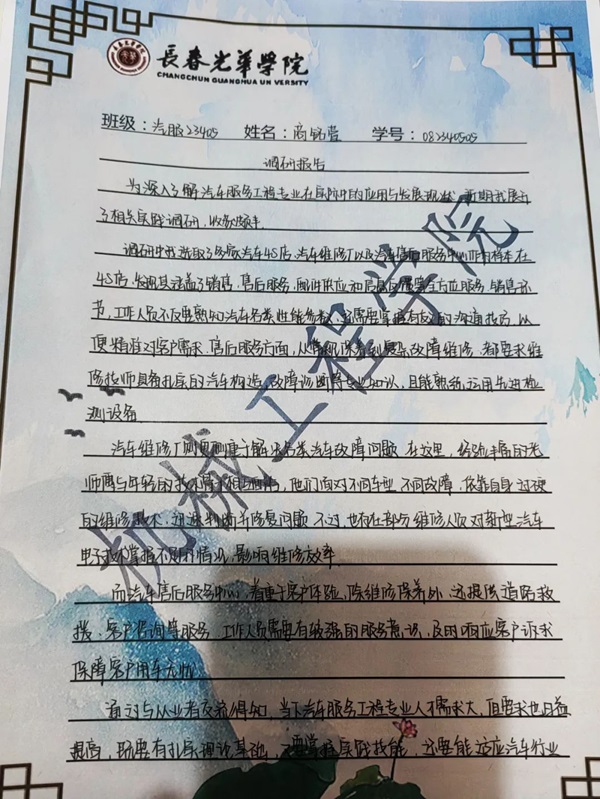 長春光華學院
CHANGCHUN GUANGHUA UNIVERSITY
班级：汽服23405 姓名：商铭萱 学号：082340505
调研报告
为深入了解汽车服务工程专业在实际中的应用与发展现状，前期我展开
了相关实践调研，收获颇丰
调研中我选取了多家汽车4S店，汽车维修厂以及汽车售后服务中心作为样本在
4S店，发现其涵盖了销售，售后服务，配件供应和信息反馈等全方位服务，销售环
节，工作人员不仅要熟知汽车各类性能参数，还需要掌握有效的沟通技巧，以
便精准对客户需求，售后服务方面，从常规保养到复杂故障维修，都要求维
修技师具备扎实的汽车构造，故障诊断等专业知识，且能熟练运用先进检
测设备
汽车维修厂则更侧重于解决各类汽车故障问题 在这里，经验丰富的老
师傅与年轻的技术骨干相互协作，他们面对不同车型 不同故障，依靠自身过硬
的维修技术，迅速判断并修复问题 不过，也存在部分维修人员对新型汽车
电子技术掌握不足的情况，影响维修效率
而汽车售后服务中心，着重于客户体验，除维修保养外，还提供道路救
援，客户咨询等服务 工作人员需要有较强的服务意识，及时响应客户诉求
保障客户用车无忧
通过与从业者交流得知，当下汽车服务工程专业人才需求大，但要求也日益
提高，既要有扎实理论基础，又要掌握实践技能，还要能适应汽车行业
机械工程学院